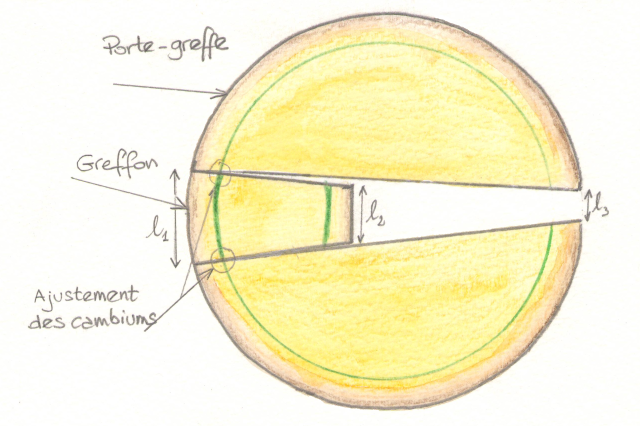 Porte-greffe
Greffon
l1
l2
l3
Ajustement
des cambiums